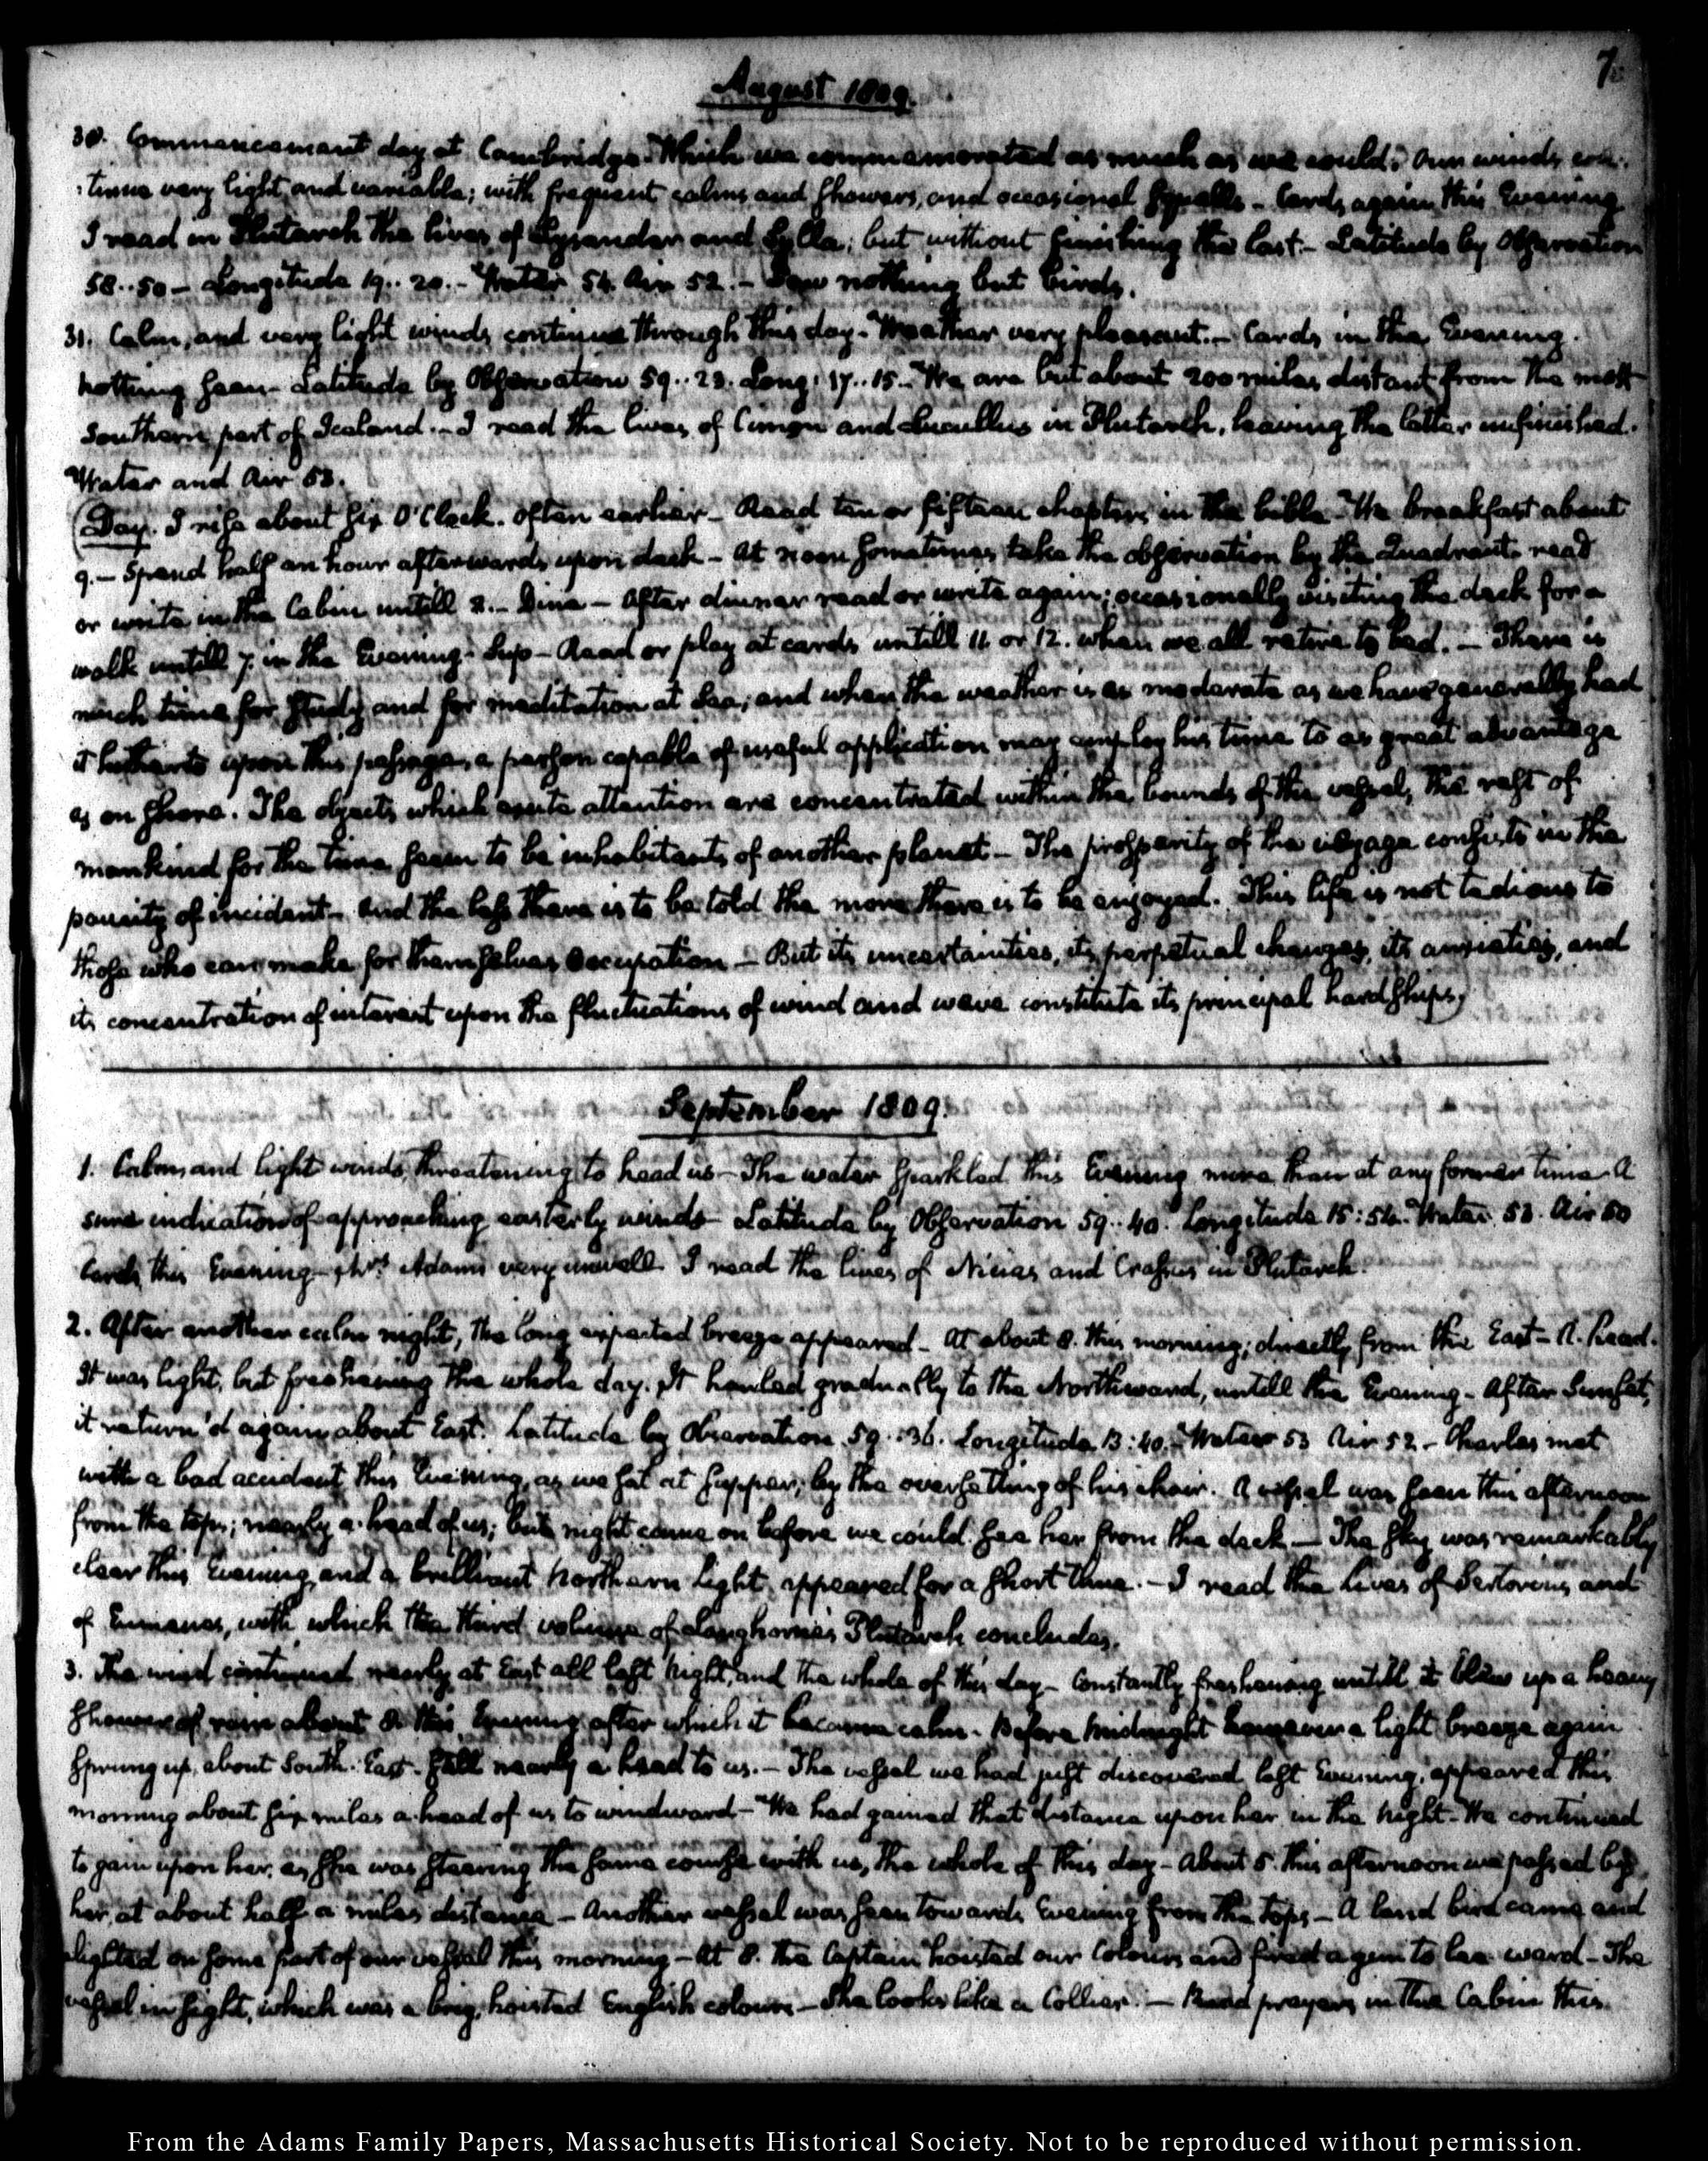 7
August 1809.
30. Commencement day at Cambridge. Which we commemorated as much as we could. Our winds con-
tinue very light, and variable; with frequent calms and showers, and occasional squalls - Cards again this Evening
I read in Plutarch the lives of Lysander and Sylla; but without finishing the last. - Latitude by Observation
58..50 - Longitude 19..20. - Water 54. Air 52. - Saw nothing but birds.
31. Calm, and very light winds continue through this day. Weather very pleasant. - Cards in the Evening.
nothing seen - Latitude by Observation 59..23. Long: 17..15. We are but about 200 miles distant from the most
Southern part of Iceland. - I read the lives of Cimon and Lucullus in Plutarch, leaving the latter unfinished.
Water and Air 53.
Day. I rise about six O'Clock. often earlier - Read ten or fifteen chapters in the bible. We breakfast about
9. - Spend half an hour afterwards upon deck - At noon sometimes take the observation by the Quadrant. read
or write in the Cabin untill 2. - Dine - After dinner read or write again; occasionally visiting the deck for a
walk untill 7. in the Evening - Sup - Read or play at cards untill 11 or 12. when we all retire to bed. - There is
much time for study and for meditation at Sea; and when the weather is as moderate as we have generally had
it hitherto upon this passage, a person capable of useful application may employ his time to as great advantage
as on shore. The objects which excite attention are concentrated within the bounds of the vessel, the rest of
mankind for the time seem to be inhabitants of another planet - The prosperity of the voyage consists in the
paucity of incident - And the less there is to be told the more there is to be enjoyed. This life is not tedious to
those who can make for themselves occupation - But its uncertainties, its perpetual changes, its anxieties, and
its concentration of interest upon the fluctuations of wind and wave constitute its principal hardships.
September 1809.
1. Calms and light winds, threatening to head us - The water sparkled this Evening more than at any former time - A
sure indication of approaching easterly winds - Latitude by Observation 59..40. Longitude 15:54. Water 53. Air 50
Cards this Evening - Mrs. Adams very unwell. I read the lives of Nicias and Crassus in Plutarch.
2. After another calm night, the long expected breeze appeared - At about 8. this morning; directly from the East - A-head.
It was light, but freshening the whole day. It hauled gradually to the Northward, untill the Evening - After Sunset,
it return'd again about East. Latitude by Observation 59.:36. Longitude 13:40. Water 53 Air 52 - Charles met
with a bad accident this Evening, as we sat at supper; by the oversetting of his chair. A vessel was seen this afternoon
from the tops; nearly a-head of us; but night came on before we could see her from the deck - The sky was remarkably
clear this Evening, and a brilliant Northern light appeared for a short time. - I read the lives of Sertorius, and
of Eumenes, with which the third volume of Langhorne's Plutarch concludes.
3. The wind continued nearly at East all last night, and the whole of this day - Constantly freshening untill it blew up a heavy
shower of rain about 8 this Evening after which it became calm. Before midnight however a light breeze again
sprung up, about South-East. Still nearly a-head to us. - The vessel we had just discovered last Evening, appeared this
morning about six miles a-head of us to windward - We had gained that distance upon her in the Night - We continued
to gain upon her, as she was steering the same course with us, the whole of this day - About 5. this afternoon we passed by
her, at about half a miles distance - Another vessel was seen towards Evening from the tops - A land bird came and
alighted on some part of our vessel this morning - At 8. the Captain hoisted our Colours and fired a gun to lee-ward - The
vessel in sight, which was a brig, hoisted English colours - She looks like a Collier. - Read prayers in the Cabin this.
From the Adams Family Papers, Massachusetts Historical Society. Not to be reproduced without permission.